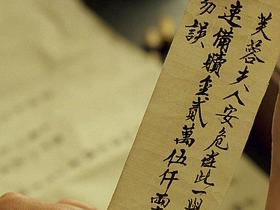 芙蓉夫人安危在此一舉
速備贖金貳萬伍仟兩
勿誤